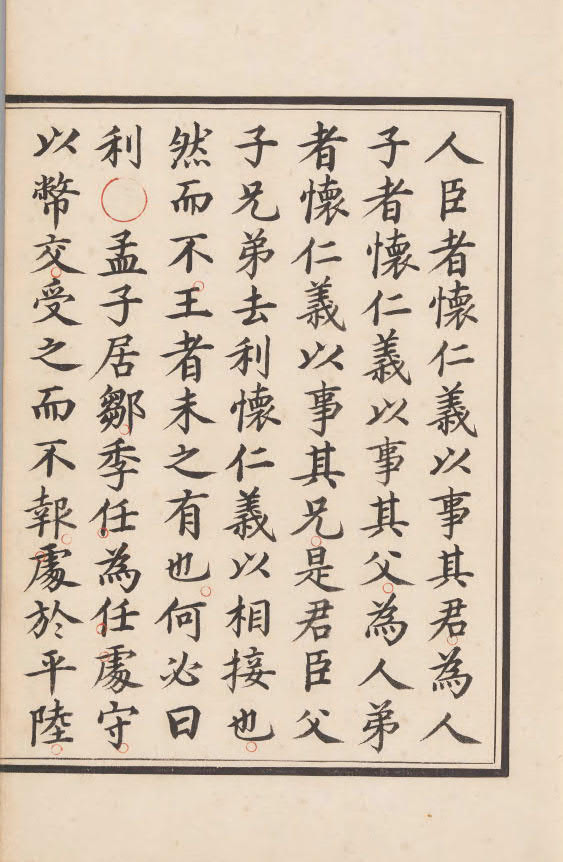 人臣者懷仁義以事其君為人
子者懷仁義以事其父為人弟
者懷仁義以事其兄是君臣父
子兄弟去利懷仁義以相接也
然而不王者未之有也何必曰
利○孟子居鄒季任為任處守
以幣交受之而不報處於平陸